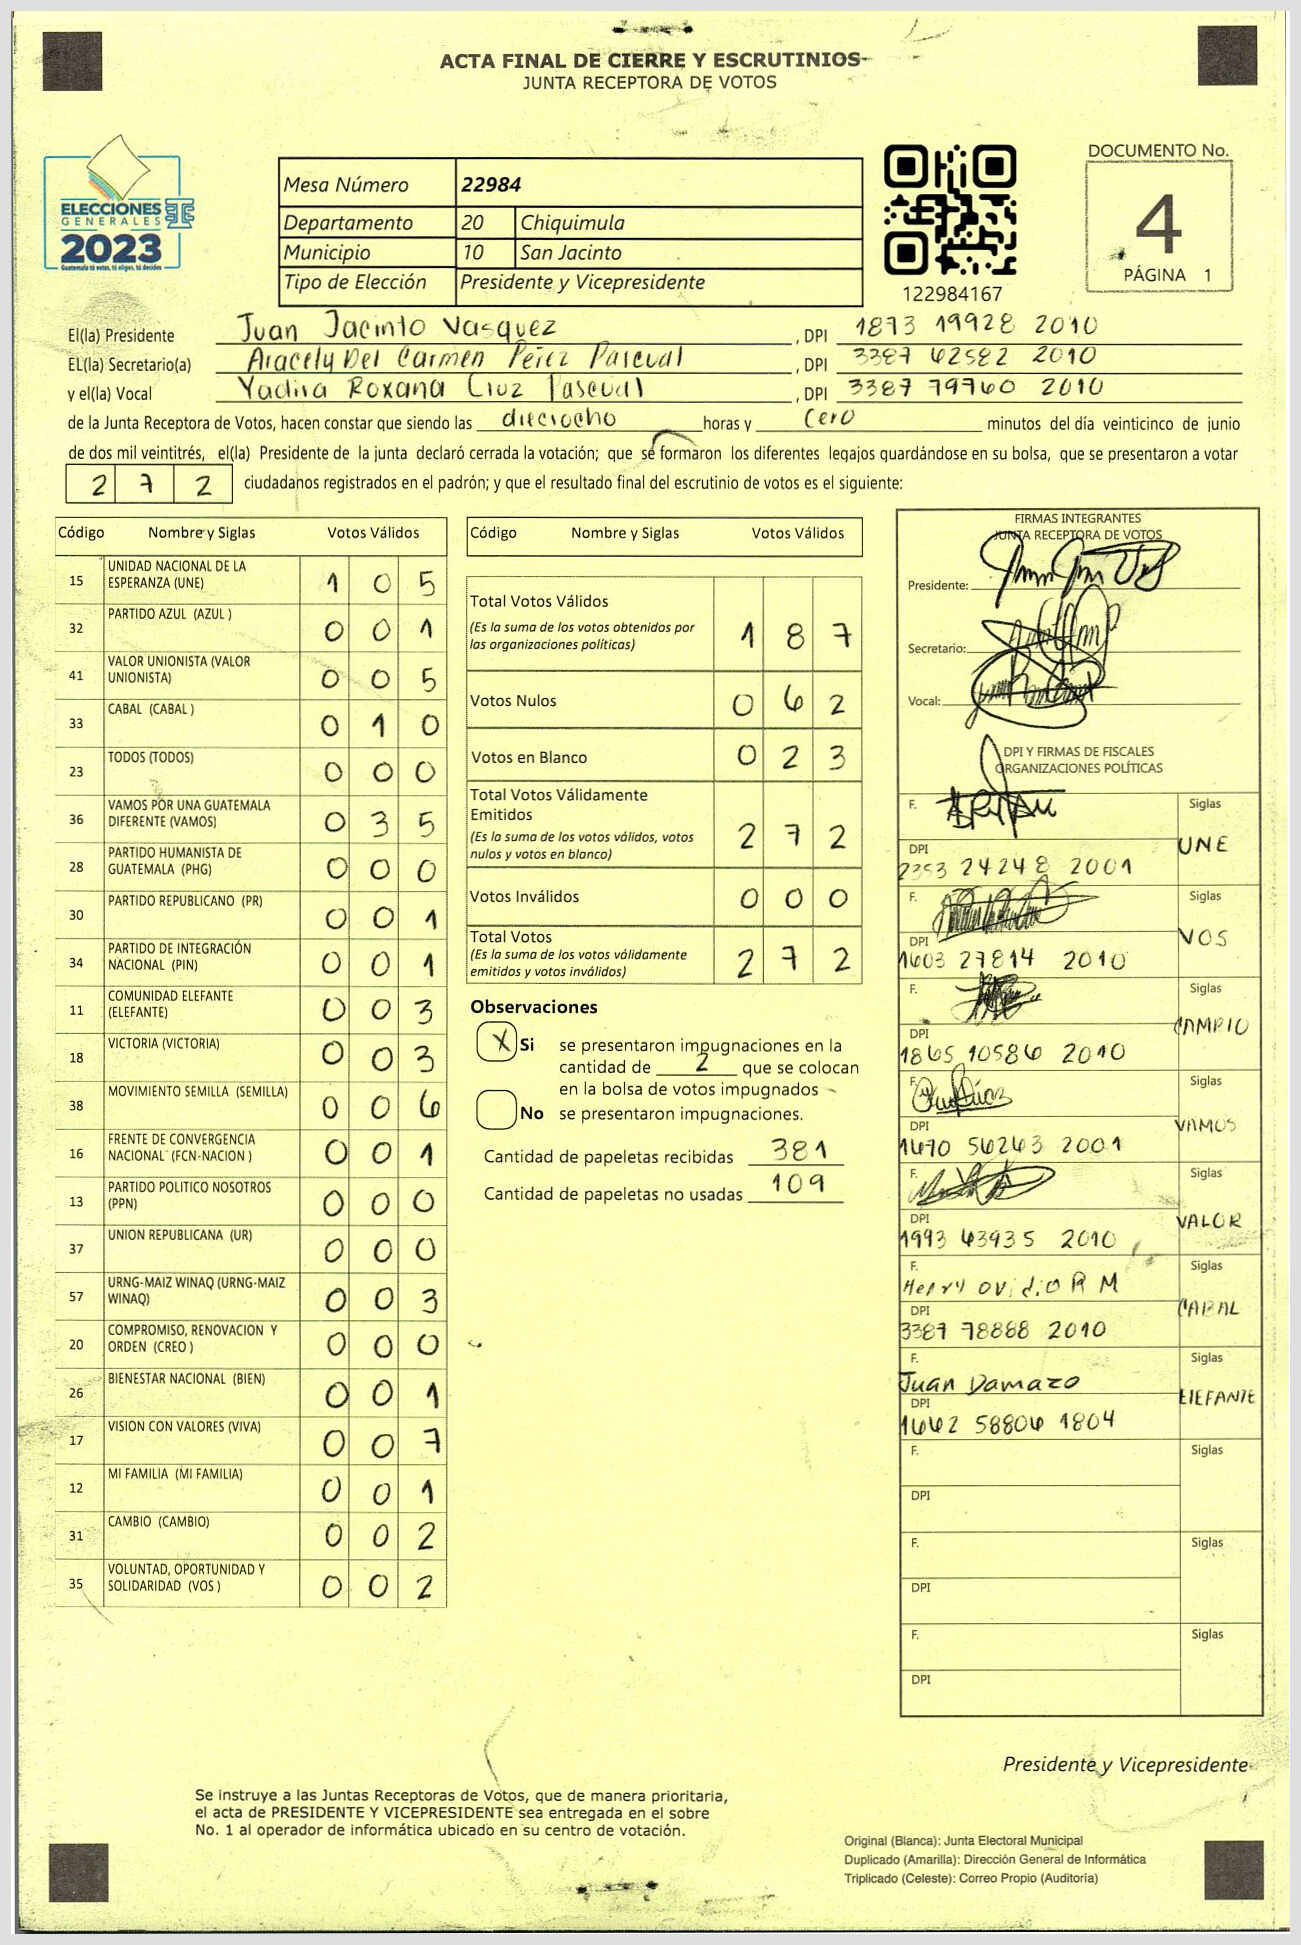 ACTA FINAL DE CIERRE Y ESCRUTINIOS
JUNTA RECEPTORA DE VOTOS
ELECCIONES
GENERALES
2023
Guatemala tú votas, tú eliges, tú decides
Mesa Número 22984
Departamento 20 Chiquimula
Municipio 10 San Jacinto
Tipo de Elección Presidente y Vicepresidente
122984167
DOCUMENTO No.
4
PÁGINA 1
El(la) Presidente Juan Jacinto Vasquez , DPI 1873 19928 2010
EL(la) Secretario(a) Aracely Del Carmen Pérez Pascual , DPI 3387 62582 2010
y el(la) Vocal Yadira Roxana Cruz Pascual , DPI 3387 79760 2010
de la Junta Receptora de Votos, hacen constar que siendo las dieciocho horas y cero minutos del día veinticinco de junio
de dos mil veintitrés, el(la) Presidente de la junta declaró cerrada la votación; que se formaron los diferentes legajos guardándose en su bolsa, que se presentaron a votar
2 7 2 ciudadanos registrados en el padrón; y que el resultado final del escrutinio de votos es el siguiente:
Código Nombre y Siglas Votos Válidos
15 UNIDAD NACIONAL DE LA ESPERANZA (UNE) 1 0 5
32 PARTIDO AZUL (AZUL ) 0 0 1
41 VALOR UNIONISTA (VALOR UNIONISTA) 0 0 5
33 CABAL (CABAL ) 0 1 0
23 TODOS (TODOS) 0 0 0
36 VAMOS POR UNA GUATEMALA DIFERENTE (VAMOS) 0 3 5
28 PARTIDO HUMANISTA DE GUATEMALA (PHG) 0 0 0
30 PARTIDO REPUBLICANO (PR) 0 0 1
34 PARTIDO DE INTEGRACIÓN NACIONAL (PIN) 0 0 1
11 COMUNIDAD ELEFANTE (ELEFANTE) 0 0 3
18 VICTORIA (VICTORIA) 0 0 3
38 MOVIMIENTO SEMILLA (SEMILLA) 0 0 6
16 FRENTE DE CONVERGENCIA NACIONAL (FCN-NACION ) 0 0 1
13 PARTIDO POLITICO NOSOTROS (PPN) 0 0 0
37 UNION REPUBLICANA (UR) 0 0 0
57 URNG-MAIZ WINAQ (URNG-MAIZ WINAQ) 0 0 3
20 COMPROMISO, RENOVACION Y ORDEN (CREO ) 0 0 0
26 BIENESTAR NACIONAL (BIEN) 0 0 1
17 VISION CON VALORES (VIVA) 0 0 7
12 MI FAMILIA (MI FAMILIA) 0 0 1
31 CAMBIO (CAMBIO) 0 0 2
35 VOLUNTAD, OPORTUNIDAD Y SOLIDARIDAD (VOS ) 0 0 2
Código Nombre y Siglas Votos Válidos
Total Votos Válidos 1 8 7
(Es la suma de los votos obtenidos por
las organizaciones políticas)
Votos Nulos 0 6 2
Votos en Blanco 0 2 3
Total Votos Válidamente
Emitidos 2 7 2
(Es la suma de los votos válidos, votos
nulos y votos en blanco)
Votos Inválidos 0 0 0
Total Votos 2 7 2
(Es la suma de los votos válidamente
emitidos y votos inválidos)
Observaciones
X Si se presentaron impugnaciones en la
cantidad de 2 que se colocan
en la bolsa de votos impugnados
No se presentaron impugnaciones.
Cantidad de papeletas recibidas 381
Cantidad de papeletas no usadas 109
FIRMAS INTEGRANTES
JUNTA RECEPTORA DE VOTOS
Presidente:
Secretario:
Vocal:
DPI Y FIRMAS DE FISCALES
ORGANIZACIONES POLÍTICAS
F. Siglas
UNE
DPI
2353 24248 2001
F. Siglas
VOS
DPI
1603 27814 2010
F. Siglas
CAMBIO
DPI
1865 10586 2010
F. Siglas
VAMOS
DPI
1670 56263 2001
F. Siglas
VALOR
DPI
1993 63935 2010
F. Siglas
Henry Ovidio R M
CABAL
DPI
3387 78888 2010
F. Siglas
Juan Damazo
ElEFANTE
DPI
1662 58806 1804
F. Siglas
DPI
F. Siglas
DPI
F. Siglas
DPI
Presidente y Vicepresidente
Se instruye a las Juntas Receptoras de Votos, que de manera prioritaria,
el acta de PRESIDENTE Y VICEPRESIDENTE sea entregada en el sobre
No. 1 al operador de informática ubicado en su centro de votación.
Original (Blanca): Junta Electoral Municipal
Duplicado (Amarilla): Dirección General de Informática
Triplicado (Celeste): Correo Propio (Auditoria)